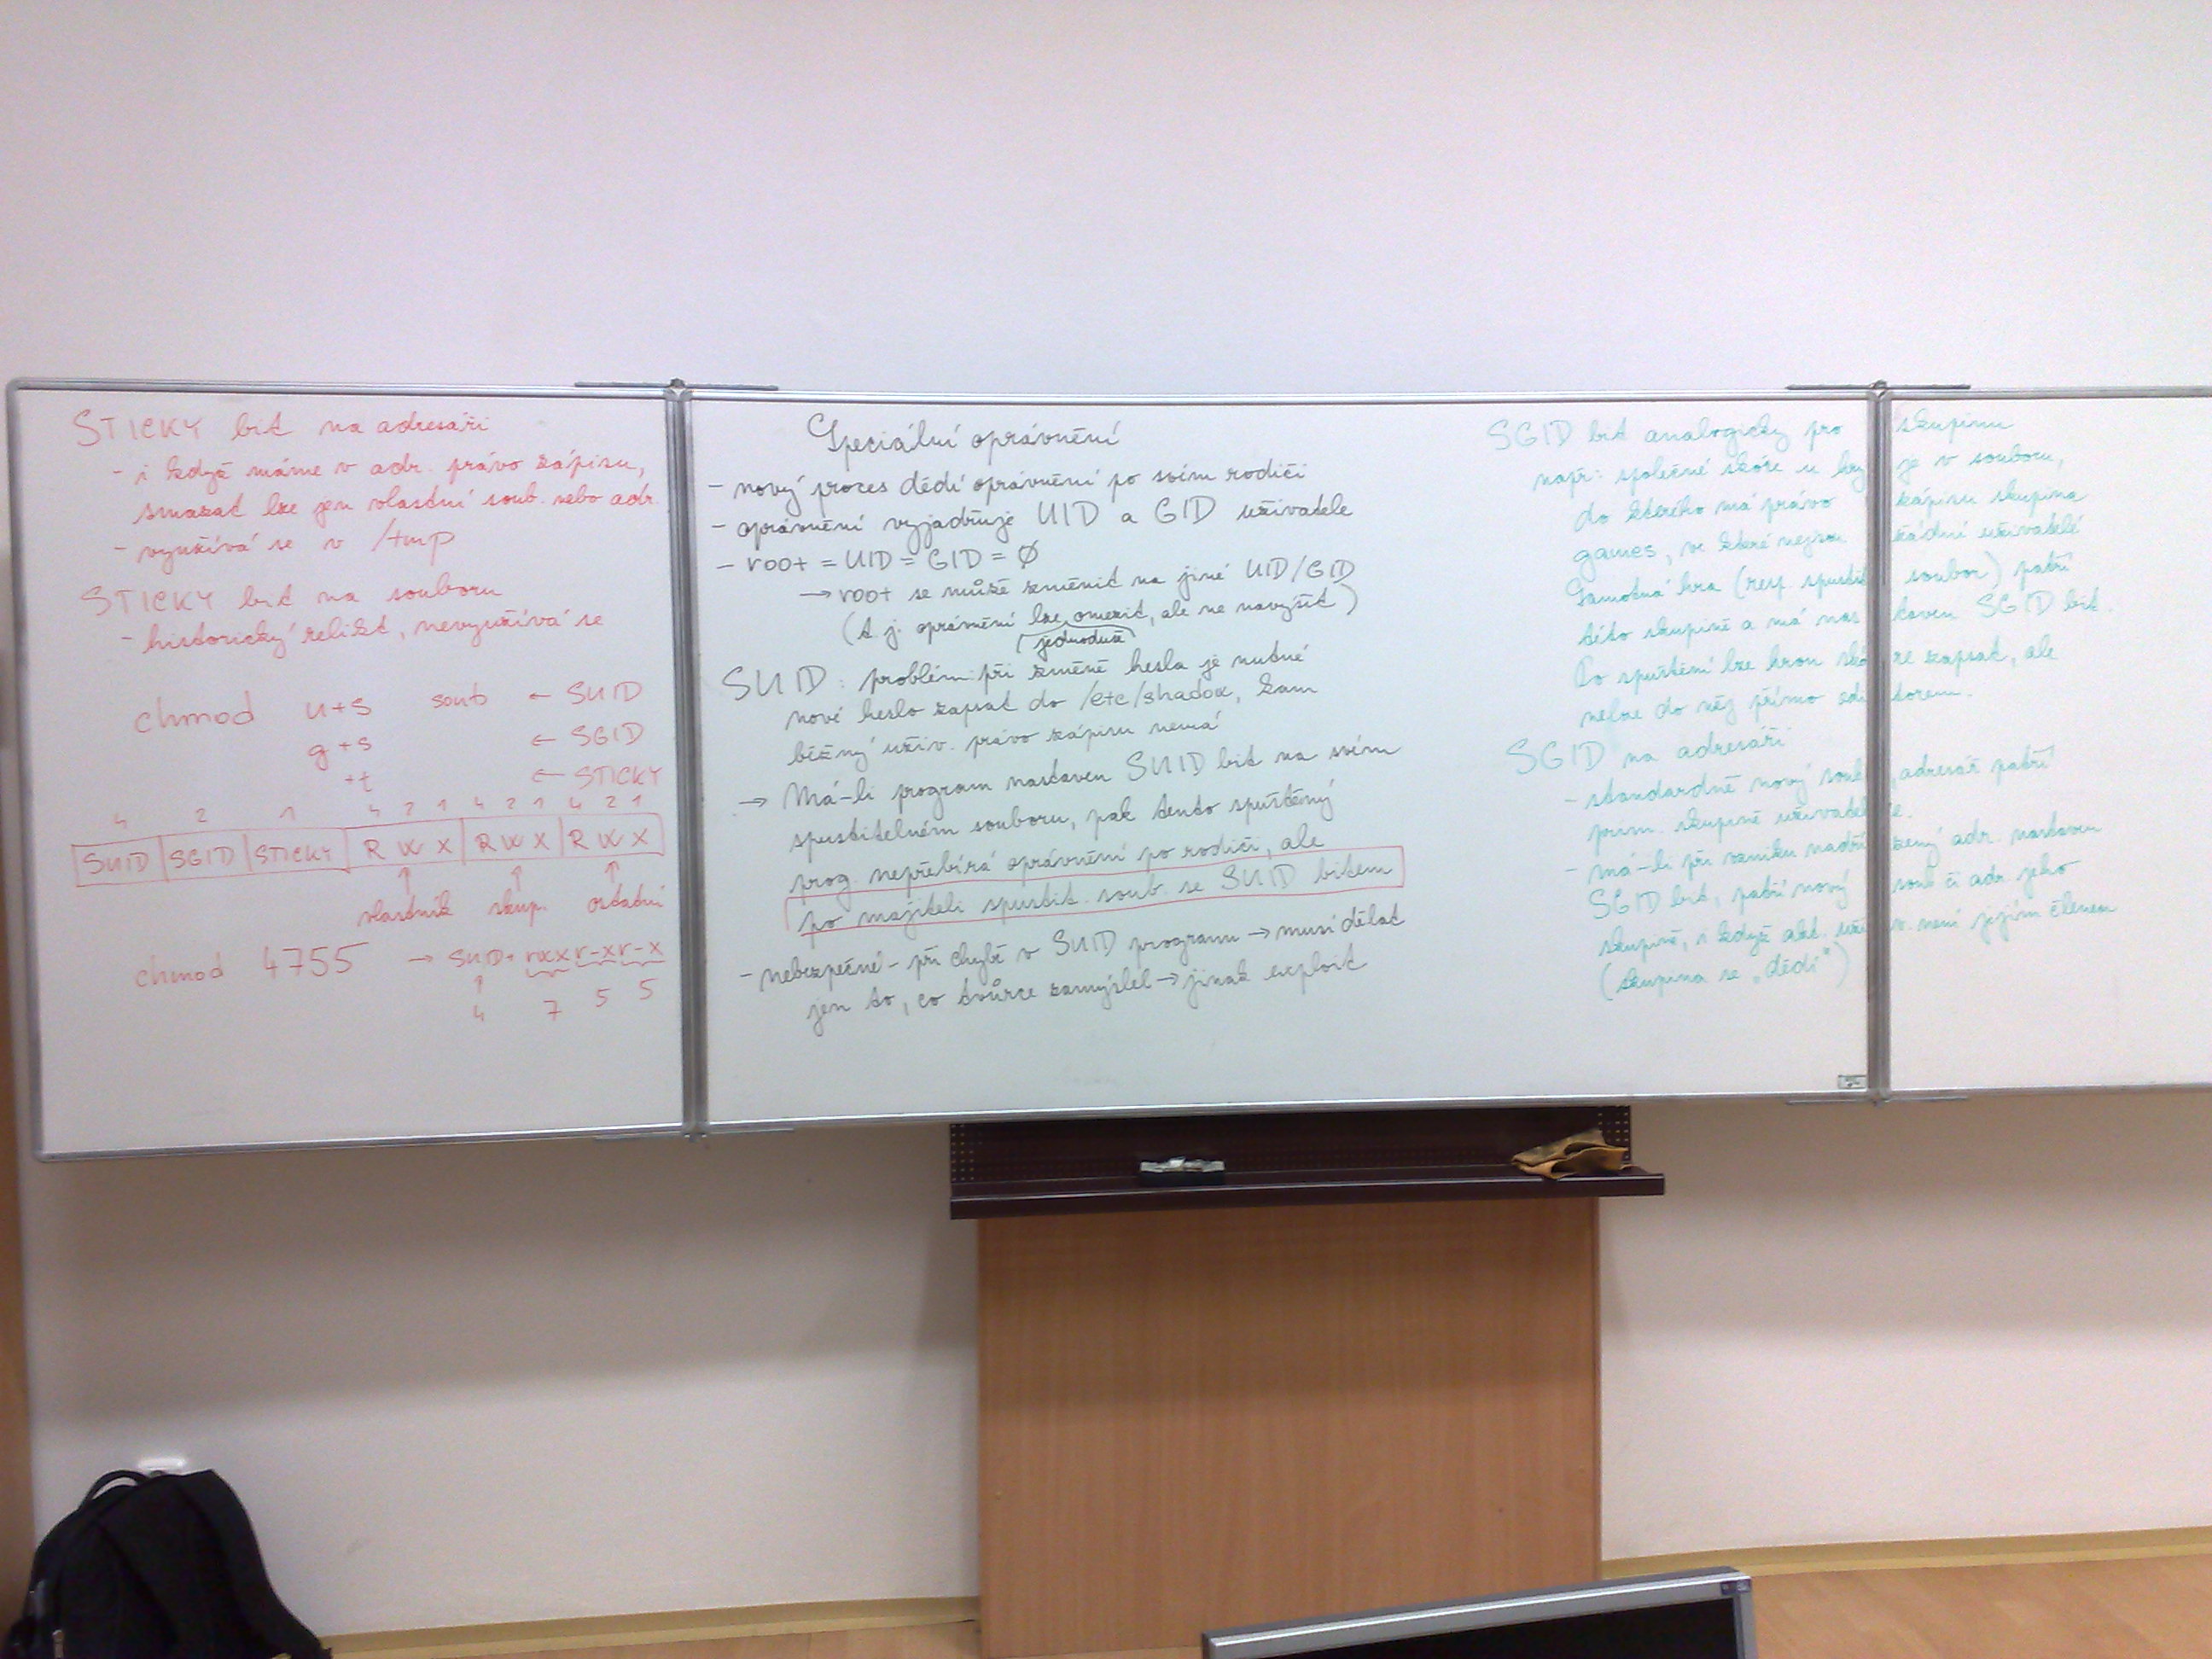 STICKY bit na adresáři
- i když máme v adr. právo zápisu,
smazat lze jen vlastní soub. nebo adr.
- využívá se v /tmp
STICKY bit na souboru
- historický relikt, nevyužívá se
chmod u+s soub ← SUID
g+s ← SGID
+t ← STICKY
4 2 1 4 2 1 4 2 1 4 2 1
SUID SGID STICKY R W X R W X R W X
↑ ↑ ↑
vlastník skup. ostatní
chmod 4755 → SUID+ rwxr-xr-x
↑
4 7 5 5
Speciální oprávnění
- nový proces dědí oprávnění po svém rodiči
- oprávnění vyjadřuje UID a GID uživatele
- root = UID = GID = Ø
→ root se může změnit na jiné UID/GID
(t.j. oprávnění lze omezit, ale ne navýšit)
(jednoduše)
SUID: problém: při změně hesla je nutné
nové heslo zapsat do /etc/shadow, kam
běžný uživ. právo zápisu nemá
→ Má-li program nastaven SUID bit na svém
spustitelném souboru, pak tento spuštěný
prog. nepřebírá oprávnění po rodiči, ale
po majiteli spustit. soub. se SUID bitem
- nebezpečné - při chybě v SUID programu → musí dělat
jen to, co tvůrce zamýšlel → jinak exploit
SGID bit analogicky pro skupinu
např: společné skóre u hry je v souboru,
do kterého má právo zápisu skupina
games, ve které nejsou žádní uživatelé
Samotná hra (resp. spustit. soubor) patří
této skupině a má nastaven SGID bit.
Po spuštění lze hrou skóre zapsat, ale
nelze do něj přímo editorem.
SGID na adresáři
- standardně nový soub., adresář patří
prim. skupině uživatele.
- má-li při vzniku nadřízený adr. nastaven
SGID bit, patří nový soub či adr. jeho
skupině, i když akt. uživ. není jejím členem
(skupina se „dědí")